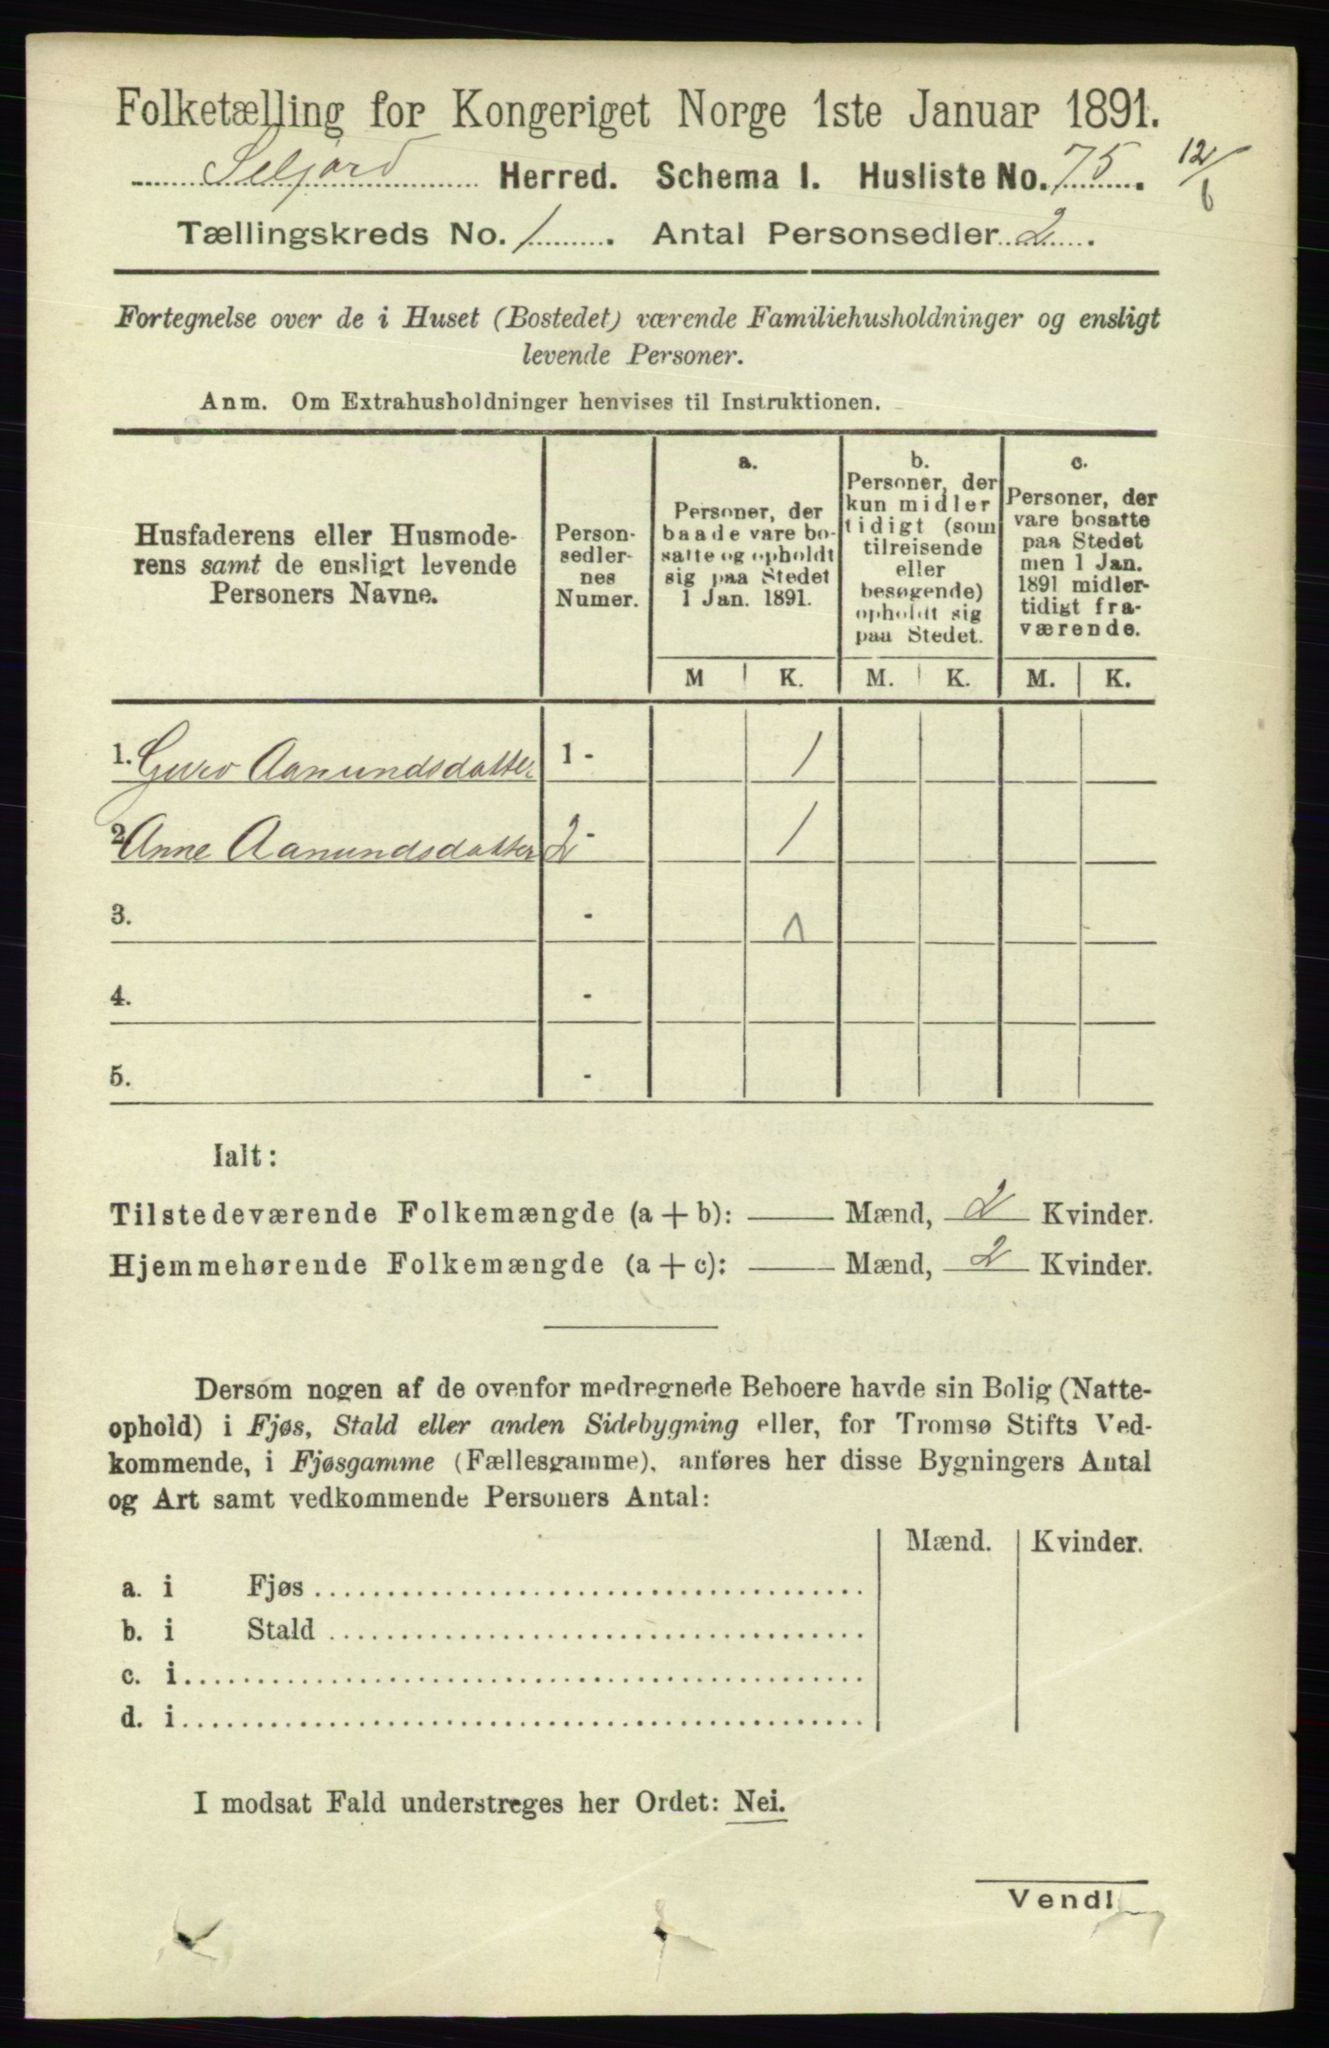 Folketælling for Kongeriget Norge 1ste Januar 1891.
Seljord Herred. Schema I. Husliste No. 75. 12/6
Tællingskreds No. 1. Antal Personsedler 2.
Fortegnelse over de i Huset (Bostedet) værende Familiehusholdninger og ensligt
levende Personer.
Anm. Om Extrahusholdninger henvises til Instruktionen.
Husfaderens eller Husmode-
rens samt de ensligt levende
Personers Navne.
Person-
sedler-
nes
Numer.
a.
Personer, der
baade vare bo-
satte og opholdt
sig paa Stedet
1 Jan. 1891.
b.
Personer, der
kun midler
tidigt (som
tilreisende
eller
besøgende)
opholdt sig
paa Stedet.
c.
Personer, der
vare bosatte
paa Stedet
men 1 Jan.
1891 midler-
tidigt fra-
værende.
M K. M. K. M. K.
1. Guro Aanundsdatter 1 - 1
2 Anne Aanundsdatter 2 - 1
3. -
4. -
5. -
Ialt:
Tilstedeværende Folkemængde (a + b): — Mænd, 2 Kvinder.
Hjemmehørende Folkemængde (a + c): — Mænd, 2 Kvinder.
Dersom nogen af de ovenfor medregnede Beboere havde sin Bolig (Natte-
ophold) i Fjøs, Stald eller anden Sidebygning eller, for Tromsø Stifts Ved-
kommende, i Fjøsgamme (Fællesgamme), anføres her disse Bygningers Antal
og Art samt vedkommende Personers Antal:
Mænd. Kvinder.
a. i Fjøs
b. i Stald
c. i
d. i
I modsat Fald understreges her Ordet: Nei.
Vend!